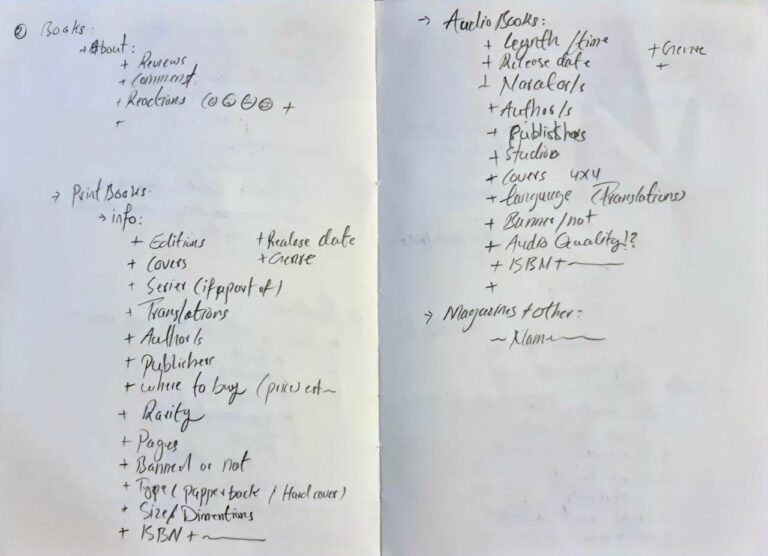 ② Books:
→ About:
+ Reviews
+ Comment
+ Reactions
+
→ Print Books:
→ info:
+ Editions + Realese date
+ Covers + Genre
+ Series (if apart of)
+ Translations
+ Author/s
+ Publishers
+ where to buy (price) est~
+ Rarity
+ Pages
+ Banned or not
+ Type (papperback / Hardcover)
+ Size/Dimentions
+ ISBN +
→ AudioBooks:
+ /time + Genre
+ Release date +
+ Narator/s
+ Author/s
+ Publishers
+ Studios
+ Covers 4x4
+ Language (Translations)
+ /not
+ Audio Quality!?
+ ISBN +
+
→ Magazines + other: